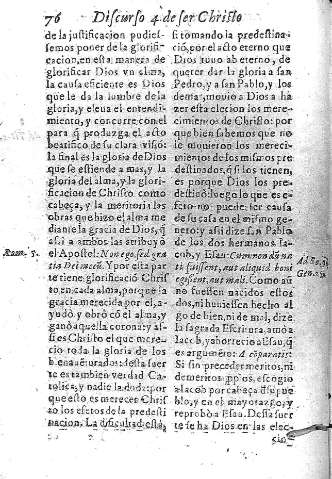 76 Discurso 4. de ser Christo
de la justificacion pudies-
semos poner de la glorifi-
cacion, en esta manera de
glorificar Dios vn alma,
la causa eficiente es Dios
que le da la lumbre de la
gloria, y eleua el entendi-
miento, y concurre con el
para q̃ produzga el acto
beatifico de su clara visiõ:
la final es la gloria de Dios
que se estiende a mas, y la
gloria del alma, y la glori-
ficacion de Christo como
cabeça, y la meritoria las
obras que hizo el alma me
diante la gracia de Dios, q̃
assi a ambos las atribuyó
Rom. 5.
el Apostol. Non ego, sed gra
tia Dei mecũ. Y por esta par
te tiene glorificació Christ
to en cada alma, porque la
gracia merecida por el, a-
yudó y obró cõ el alma, y
ganó aquella corona: y as-
si es Christo el que mere-
cio toda la gloria de los
bienauẽturados: desta suer
te es tambien verdad Ca-
tolica, y nadie la dõda: por
que esto es merecer Chris
to los efetos de la predesti
nacion. La dificultad està,
si tomando la predestina-
ció, por el acto eterno que
Dios tuuo ab eterno, de
querer dar la gloria a san
Pedro, y a san Pablo, y los
demas, mouio a Dios a ha
zer esta eleccion los mere-
cimientos de Christo: por
que bien sabemos que no
le mouieron los mereci-
mientos de los mismos pre
destinados, q̃ si los tienen,
es porque Dios los pre-
destinó: luego lo que es e-
fecto no puede ser causa
de su causa en el mismo ge-
nero: y assi dize san Pablo
de los dos hermanos Ia-
cob, y Esau: Cum non dũ na
ti fuissent, aut aliquid boni
egissent, aut mali. Como aũ
Ad Ro. 9.
Gen. 25.
no fuessen nacidos essos
dos, ni huuiessen hecho al
go de bien, ni de mal, dize
la sagrada Escritura, amò a
Iacob, y aborrecio a Esau, q̃
es argumẽto: A cõparatis:
Si sin preceder meritos, ni
demeritos ꝓpios, escogio
a Iacob por cabeça de su pue
blo, y en el mayorazgo, y
reprobò a Esau. Dessa suer
te se ha Dios en las elec-
cio-